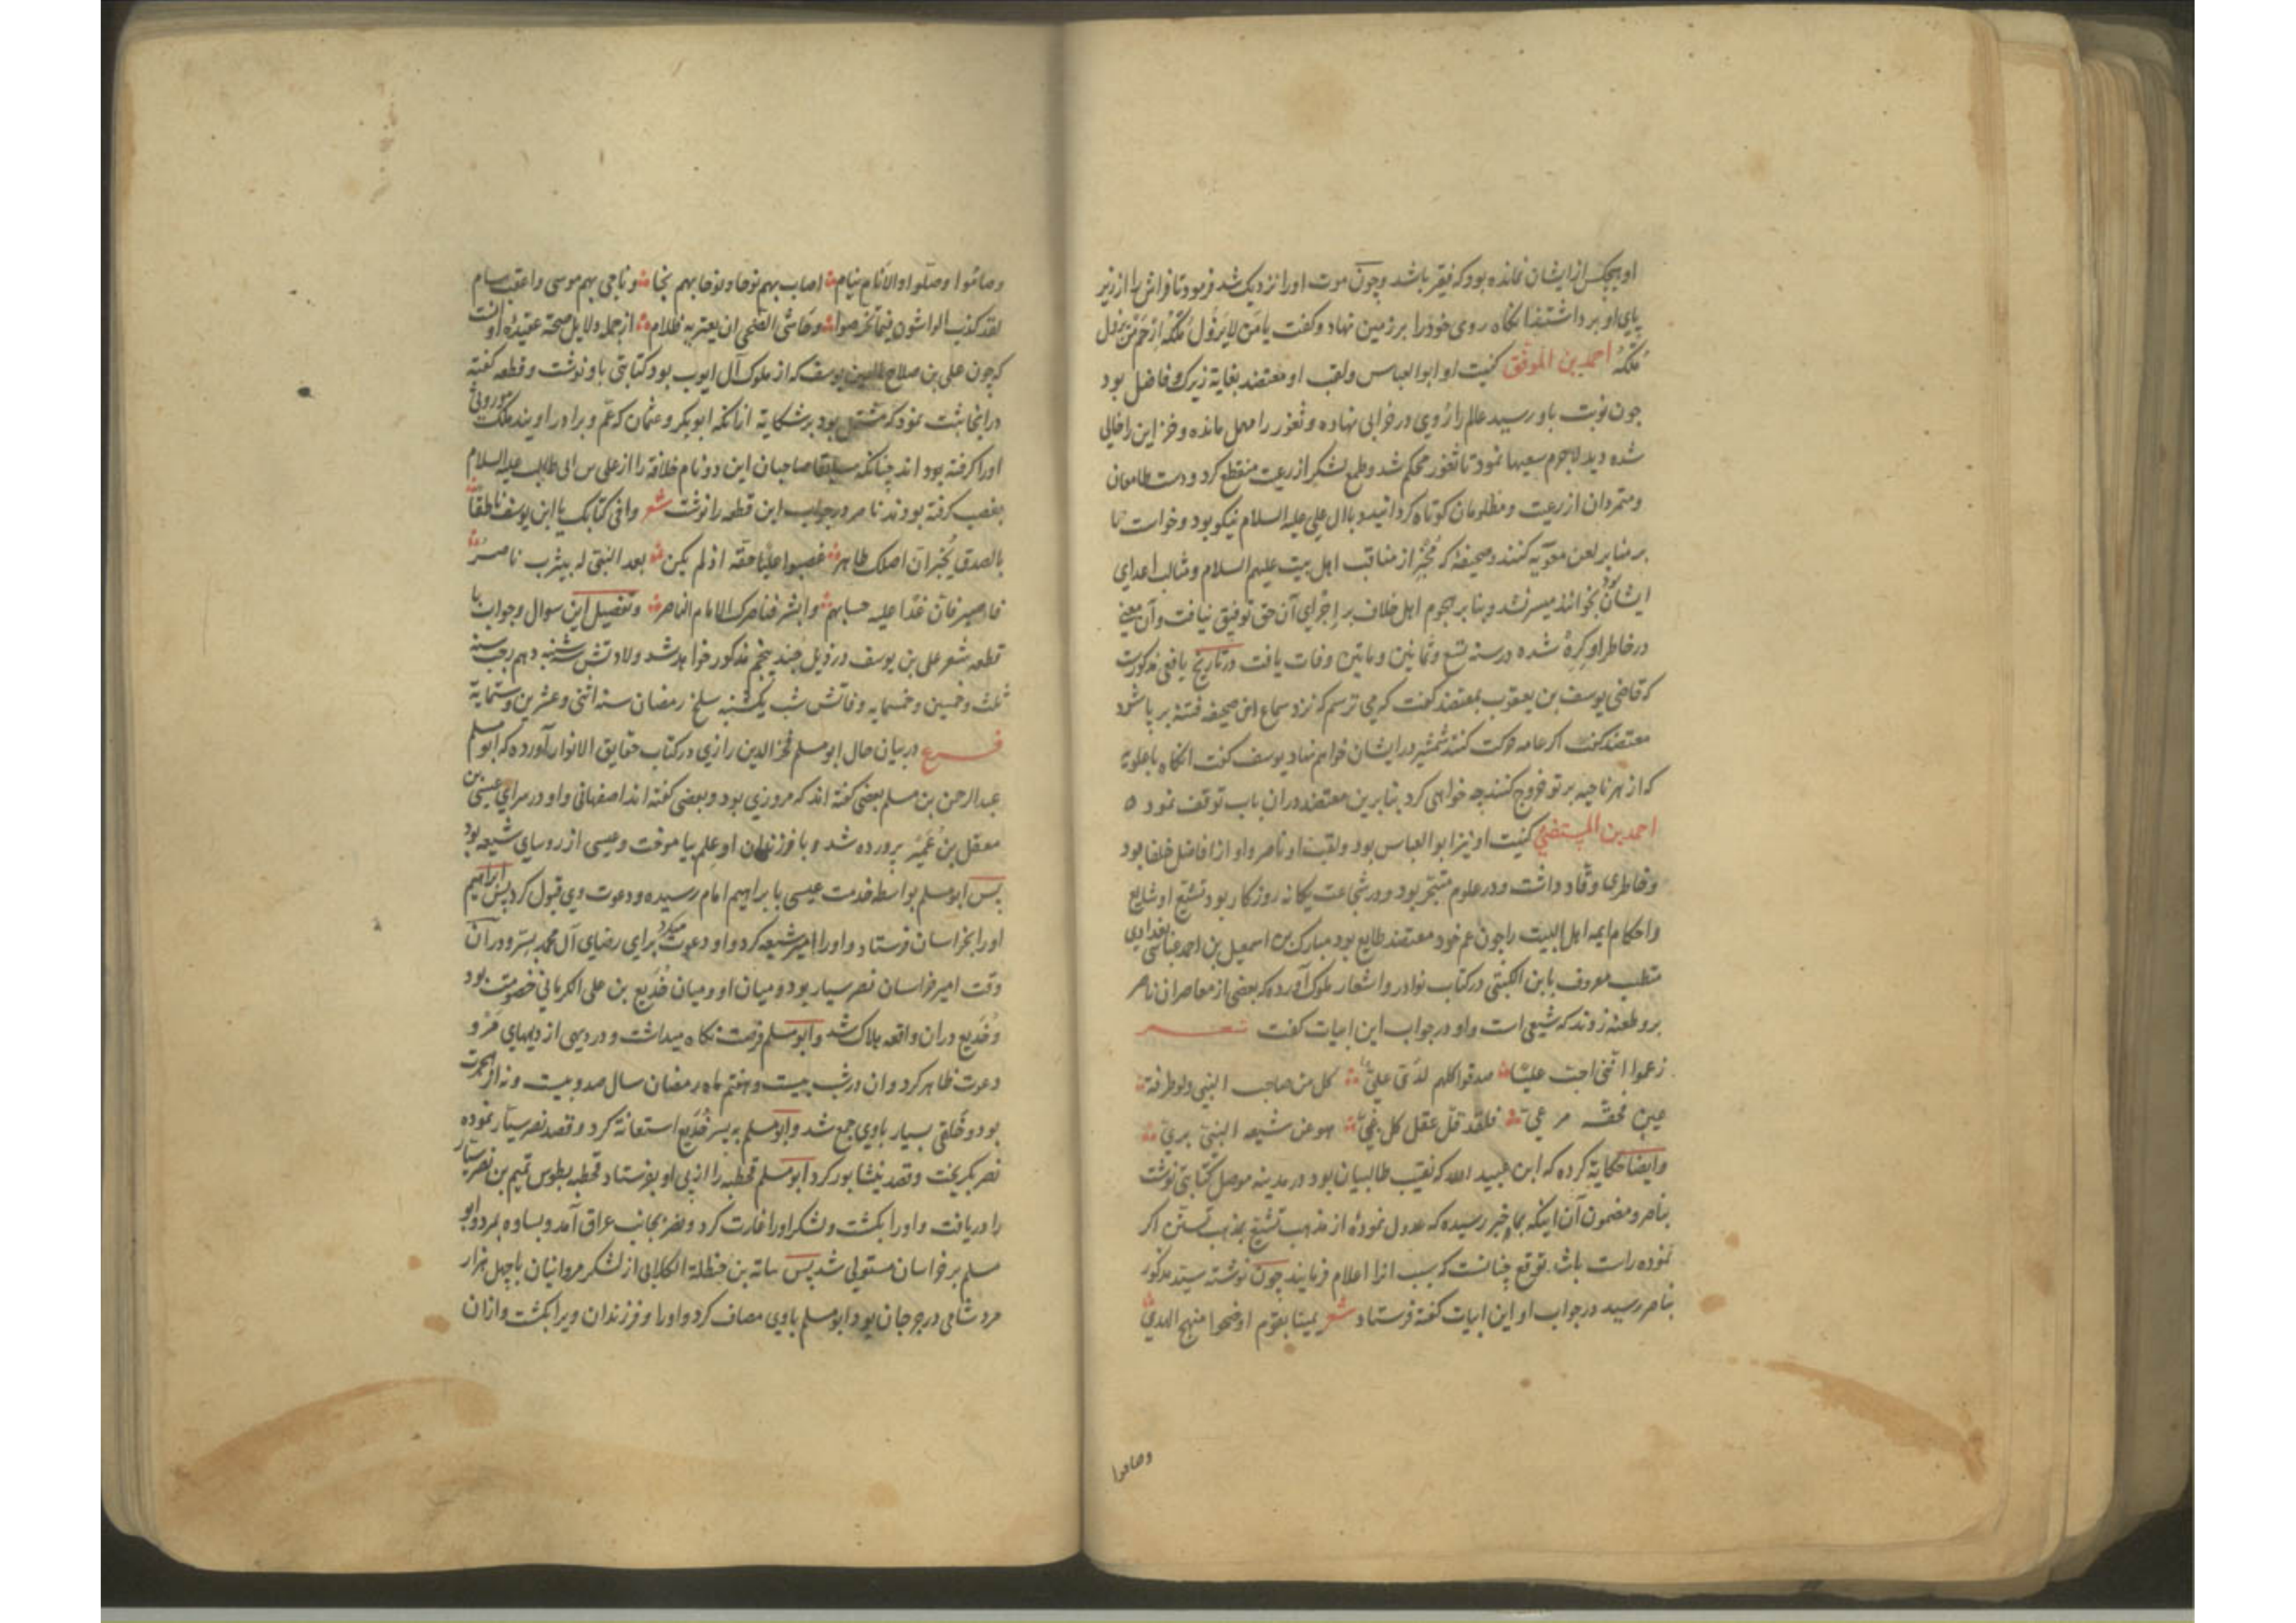 او هیچکس از ایشان نمانده بود که فقیر باشد وچون موت اورا نزدیک شد فرمود تا فراش را از زیر
پای او برداشتند انکاه روی خودرا بر زمین نهاد وکفت یا من لا یزول ملکه ارحم من یزول
ملکه احمد بن الموفق کنیت او ابوالعباس ولقب او معتضد بغایة زیرک وفاضل بود
چون نوبت باو رسید عالم را روی در خرابی نهاده وثغور را مهمل مانده وخزاین را خالی
شده دید لاجرم سعیها نمود تا ثغور محکم شد وطمع لشکر از رعیت منقطع کرد ودست طامعان
ومتمردان از رعیت ومظلومان کوتاه کردانید وباال علی علیه السلام نیکو بود وخواست تا
بر منابر لعن معویه کنند وصحیفهٔ که مخبر از مناقب اهل بیت علیهم السلام ومثالب اعدای
ایشان بود بخوانند میسر نشد وبنا بر هجوم اهل خلاف بر اجرای آن حق توفیق نیافت وآن معنی
در خاطر او کره شده در سنه تسع وثمانین وماتین وفات یافت در تاریخ یافعی مذکورست
که قاضی یوسف بن یعقوب بمعتضد کفت که می ترسم که نزد سماع این صحیفه فتنه بر پا شود
معتضد کفت اکر عامه حرکت کنند شمشیر در ایشان خواهم نهاد یوسف کفت انکاه باعلویه
که از هر ناحیه بر تو خروج کنند چه خواهی کرد بنابرین معتضد دران باب توقف نمود ه
احمد بن المستضئ کنیت او نیز ابوالعباس بود ولقب او ناصر واو از افاضل خلفا بود
وخاطری وقاد داشت ودر علوم متبحر بود ودر شجاعت یکانه روزکار بود وتشیع او شایع
واحکام ایمه اهل البیت را چون عم خود معتضد طایع بود مبارک بن اسمعیل بن احمد عباسی بغدادی
متطبب معروف بابن الکبتی در کتاب نوادر واشعار ملوک آورده که بعضی از معاصران ناصر
برو طعنه زدند که شیعی است واو در جواب این ابیات کفت شعر
زعموا اننی احب علیا صدقوا کلهم لدی علی کل من صاحب النبی ولو طرفة
عین محقه مرعی فلقد قل عقل کل غبی هو عن شیعه النبی بری
وایضا حکایة کرده که ابن عبید الله که نقیب طالبیان بود در مدینه موصل کتابتی نوشت
بناصر ومضمون آن اینکه بما خبر رسیده که عدول نموده از مذهب تشیع بمذهب تسنن اکر
نموده راست باشد توقع چنانست که سبب انرا اعلام فرمایند چون نوشته سید مذکور
بناصر رسید در جواب او این ابیات کفته فرستاد شعر یمینا بقوم اوضحوا منهج الهدی
وصاموا
وصاموا وصلوا والانام نیام اصاب بهم نوحا ونوحا بهم نجا وناجی بهم موسی واعقب سام
لقد کذب الواشون فیما تخرصوا وحاشی الضحی ان یعتریه ظلام از جمله دلایل صحة عقیدهٔ اوست
که چون علی بن صلاح الدین یوسف که از ملوک آل ایوب بود کتابتی باو نوشت وقطعه کفته
درانجا ثبت نمود که مشتمل بود بر شکایة ازانکه ابوبکر وعثمان که عم وبرادر اویند ملک موروثی
اورا کرفته بود اند چنانکه سابقا صاحبان این دو نام خلافة را از علی بن ابی طالب علیه السلام
بغصب کرفته بودند ناصر در جواب این قطعه را نوشت شعر وافی کتابک یا ابن یوسف ناطقا
بالصدق یخبر ان اصلک طاهر غصبوا علیا حقه اذ لم یکن بعد النبی له بیثرب ناصر
فاصبر فان غدا علیه حسابهم وابشر فناصرک الامام الناصر وتفصیل این سوال وجواب با
قطعه شعر علی بن یوسف در ذیل جند پنجم مذکور خواهد شد ولادتش شنبه دهم رجب سنه
ثلث وخمسین وخمسمایه وفاتش شب یکشنبه سلخ رمضان سنه اثنی وعشرین وستمایة
فرع در بیان حال ابومسلم فخر الدین رازی در کتاب حقایق الانوار آورده که ابو مسلم
عبدالرحمن بن مسلم بعضی کفته اند که مروزی بود وبعضی کفته اند اصفهانی واو در سرای عیسی بن
معقل بن عمیر پرورده شد وبا فرزندان او علم بیاموخت وعیسی از روسای شیعه بود
پس ابومسلم بواسطه خدمت عیسی با براهیم امام رسیده ودعوت وی قبول کرد پس ابراهیم
اورا بخراسان فرستاد واورا امیر شیعه کرد واو دعوت میکرد برای رضای آل محمد بسر ودر آن
وقت امیر خراسان نصر سیار بود ومیان او ومیان خدیع بن علی الکرمانی خصومت بود
وخدیع دران واقعه هلاک شد وابومسلم فرصت نکاه میداشت ودر دیهی از دیههای مرو
دعوت ظاهر کرد وان در شب بیست وهفتم ماه رمضان سال صد وبیست ونه از هجرت
بود وخلقی بسیار باوی جمع شد وابومسلم به پسر خدیع استعانة کرد وقصد نصر سیار نموده
نصر بکریخت وقصد نیشابور کرد ابومسلم قحطبه را از پی او بفرستاد قحطبه بطوس تمیم بن نصر سیار
را دریافت واورا بکشت ولشکر اورا غارت کرد ونصر بجانب عراق آمد وبساوه بمرد وابو
مسلم بر خراسان مستولی شد پس نباته بن حنظلة الکلابی از لشکر مروانیان باچهل هزار
مرد شامی در جرجان بود ابومسلم باوی مصاف کرد واورا وفرزندان ویرا بکشت وازان